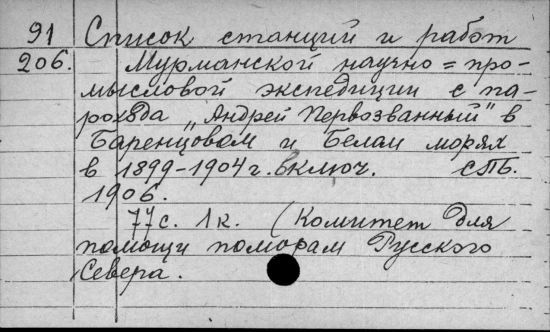 91 Список станций и работ
206. Мурманской научно=про-
мысловой экспедиции с па-
рохода „Андрей Первозванный" в
Баренцовом и Белом морях
в 1899-1904 г. включ. СПБ.
1906.
77 с. 1 к. (Комитет для
помощи поморам Русского
Севера.